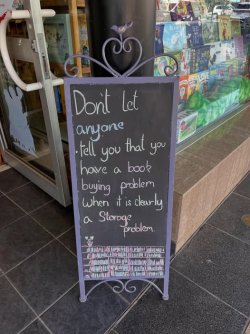 Don't let
anyone
tell you that you
have a book
buying problem
when it is clearly
a Storage
problem.